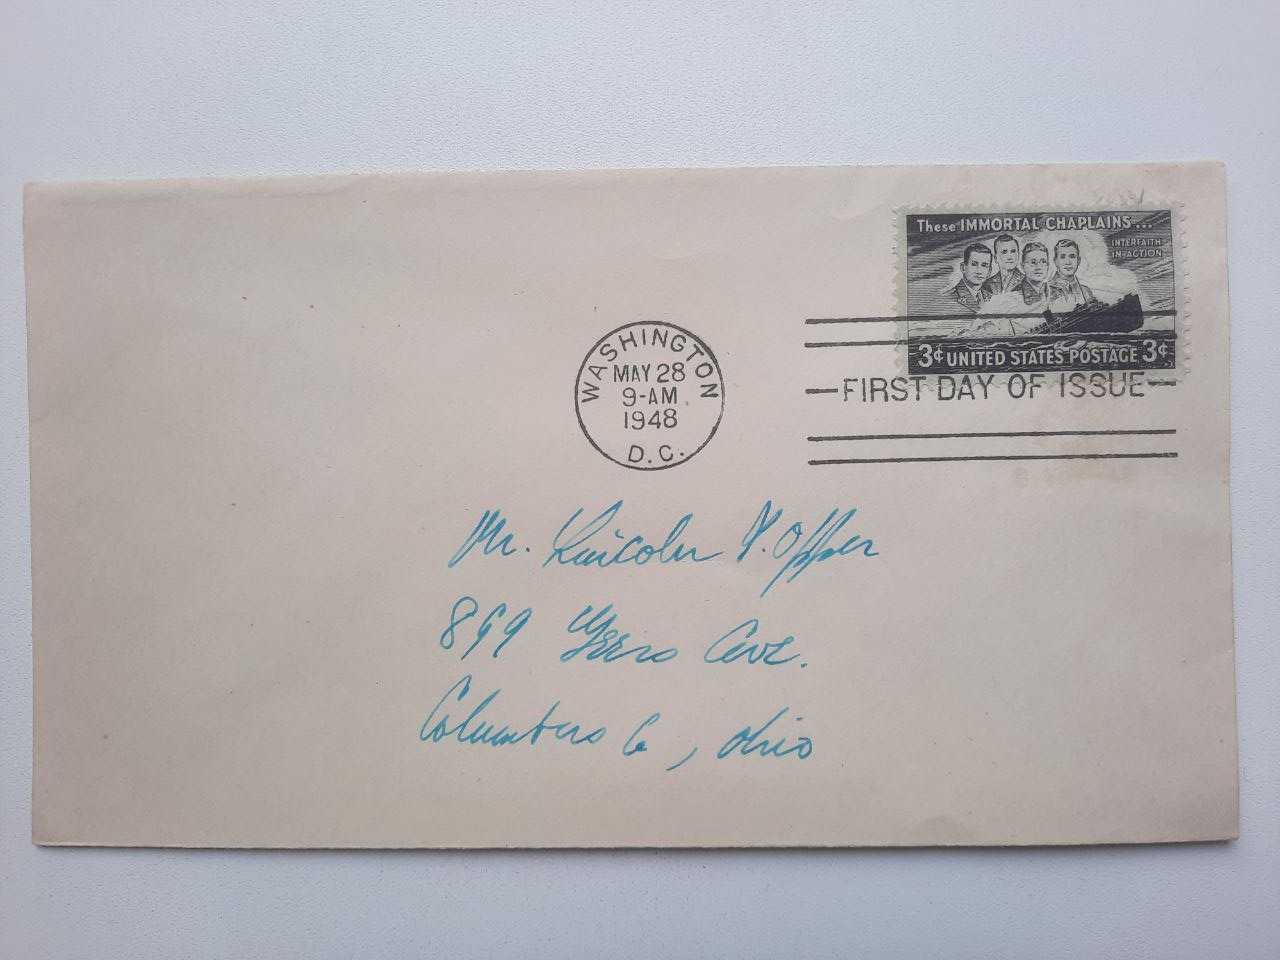 These IMMORTAL CHAPLAINS...
INTERFAITH
IN ACTION
3¢ UNITED STATES POSTAGE 3¢
WASHINGTON
MAY 28
9-AM
1948
D.C.
FIRST DAY OF ISSUE
Mr. Lincoln Y. Opper
899 Ave.
Columbus 6, Ohio